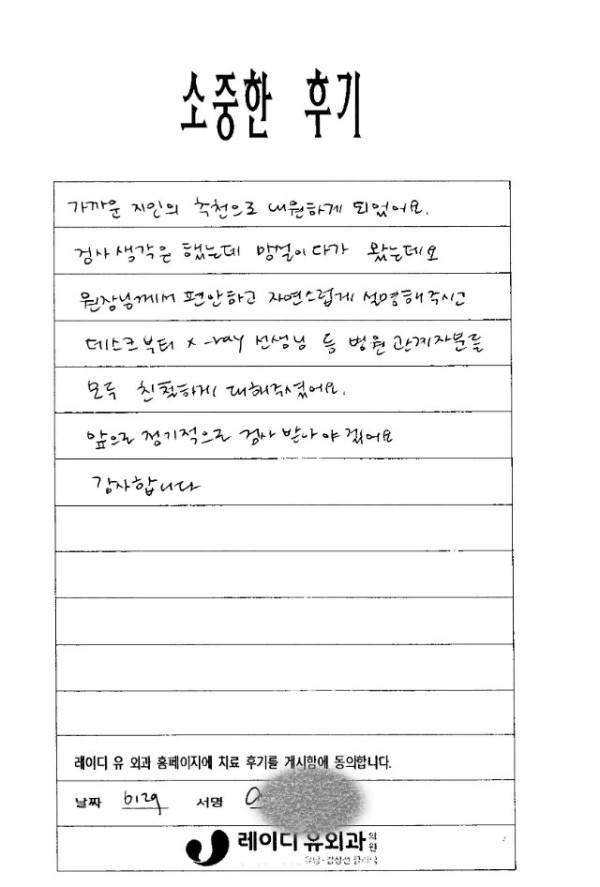 소중한 후기
가까운 지인의 추천으로 내원하게 되었어요.
검사 생각은 했는데 망설이다가 왔는데요
원장님께서 편안하고 자연스럽게 설명해주시고
데스크부터 x-ray 선생님 등 병원 관계자분들
모두 친절하게 대해주셨어요.
앞으로 정기적으로 검사 받아야 겠어요
감사합니다
레이디 유 외과 홈페이지에 치료 후기를 게시함에 동의합니다.
날짜 6/29 서명
레이디 유외과 의원
유방·갑상선 클리닉